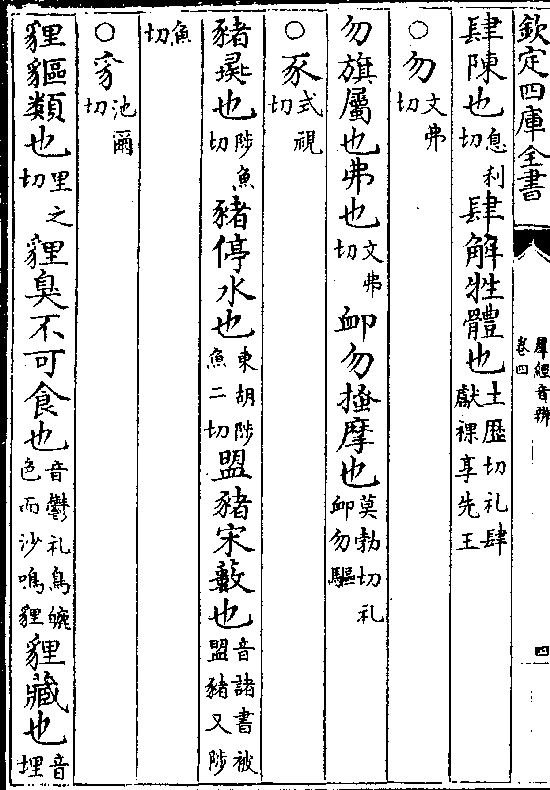 欽定四庫全書
羣經音辨
卷四
四
肆陳也息利切肆解牲體也土歷切礼肆獻祼享先王
○勿文弗切
勿旗屬也弗也文弗切卹勿搔摩也莫勃切礼卹勿驅
○豕式視切
豬彘也陟魚切豬停水也東胡陟魚二切盟豬宋藪也音諸書被盟豬又陟
魚切
○豸池爾切
貍貙類也里之切貍臭不可食也音鬱礼鳥皫色而沙鳴貍貍藏也音埋